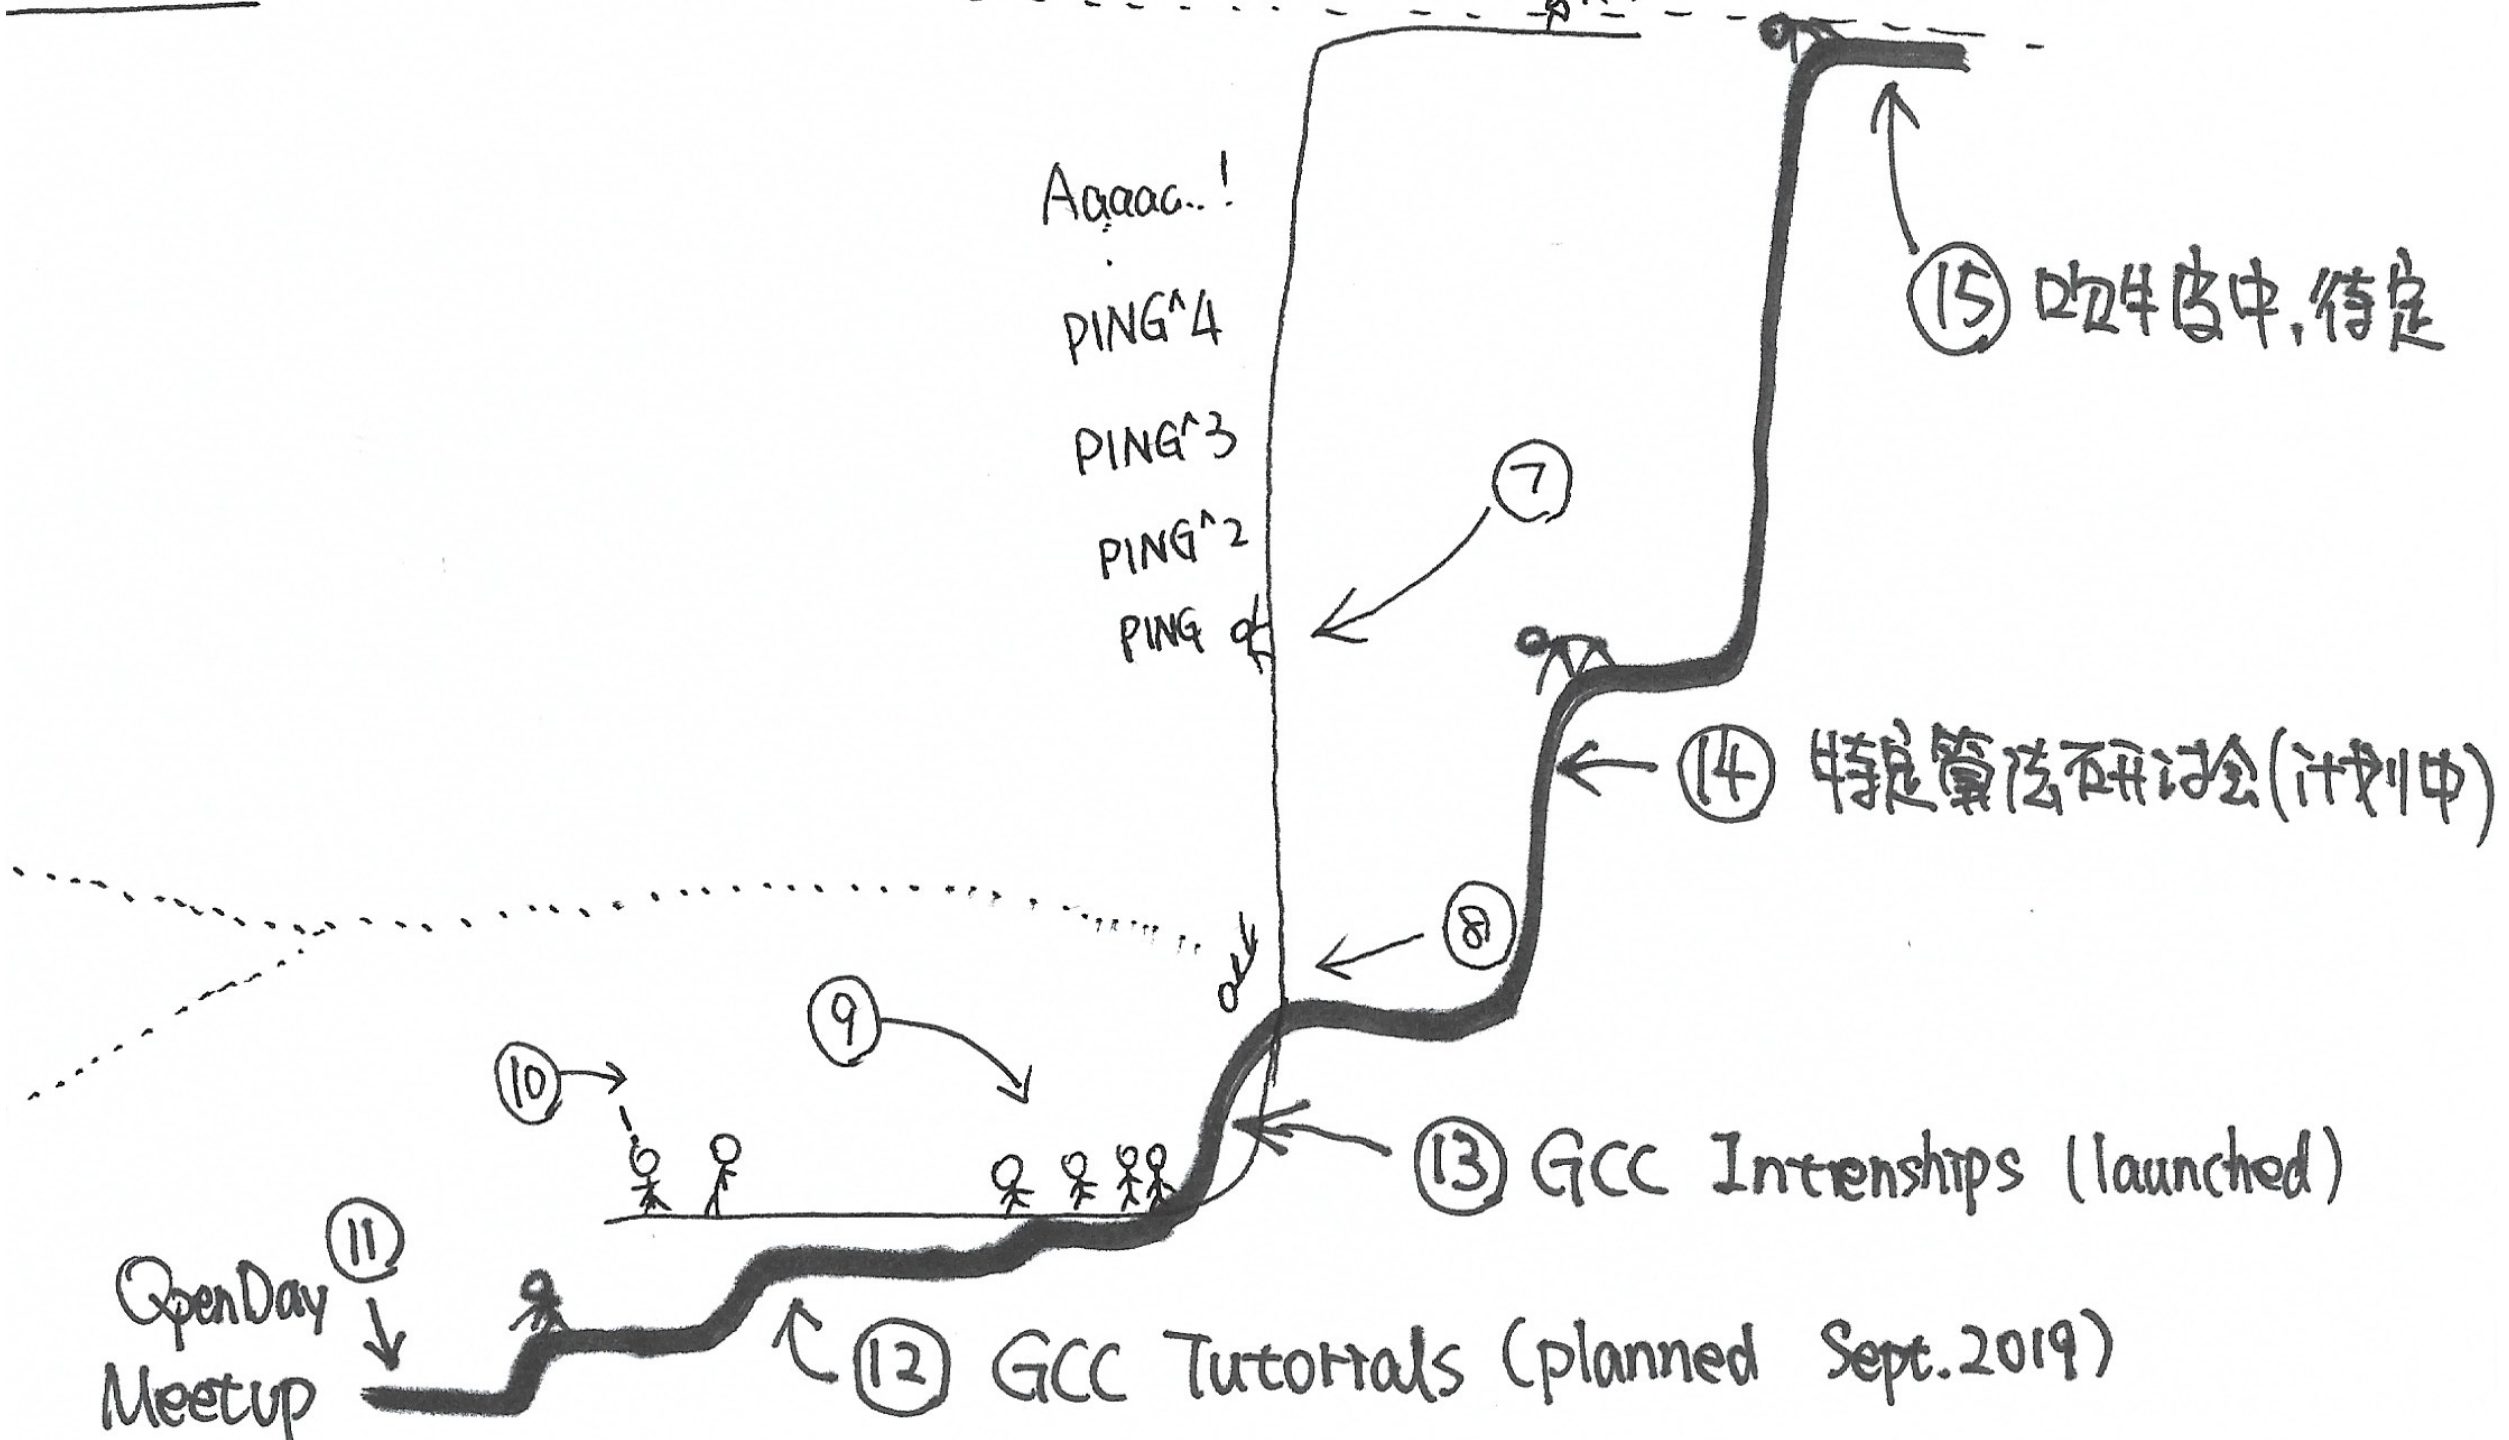 Aaaaa..!
PING^4
PING^3
PING^2
PING
⑦
⑮ 吹牛皮中,待定
⑭ 特定算法研讨会(计划中)
⑧
⑨
⑩
⑬ GCC Intrenships (launched)
⑪
OpenDay
Meetup
⑫ GCC Tutorials (planned Sept.2019)